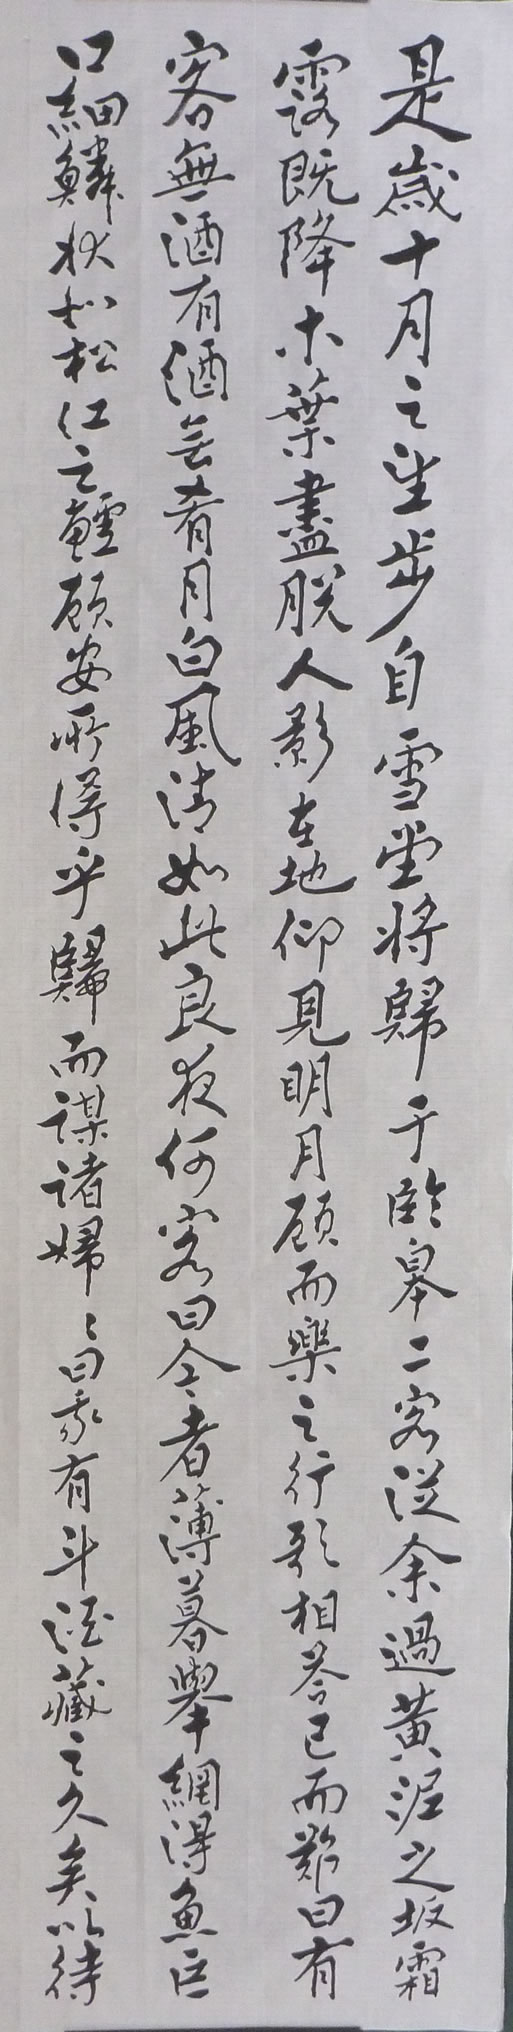 是歲十月之望步自雪堂將歸于臨皋二客從余過黃泥之坂霜
露既降木葉盡脫人影在地仰見明月顧而樂之行歌相答已而歎曰有
客無酒有酒無肴月白風清如此良夜何客曰今者薄暮舉網得魚巨
口細鱗狀如松江之鱸顧安所得乎歸而謀諸婦〻曰我有斗酒藏之久矣以待